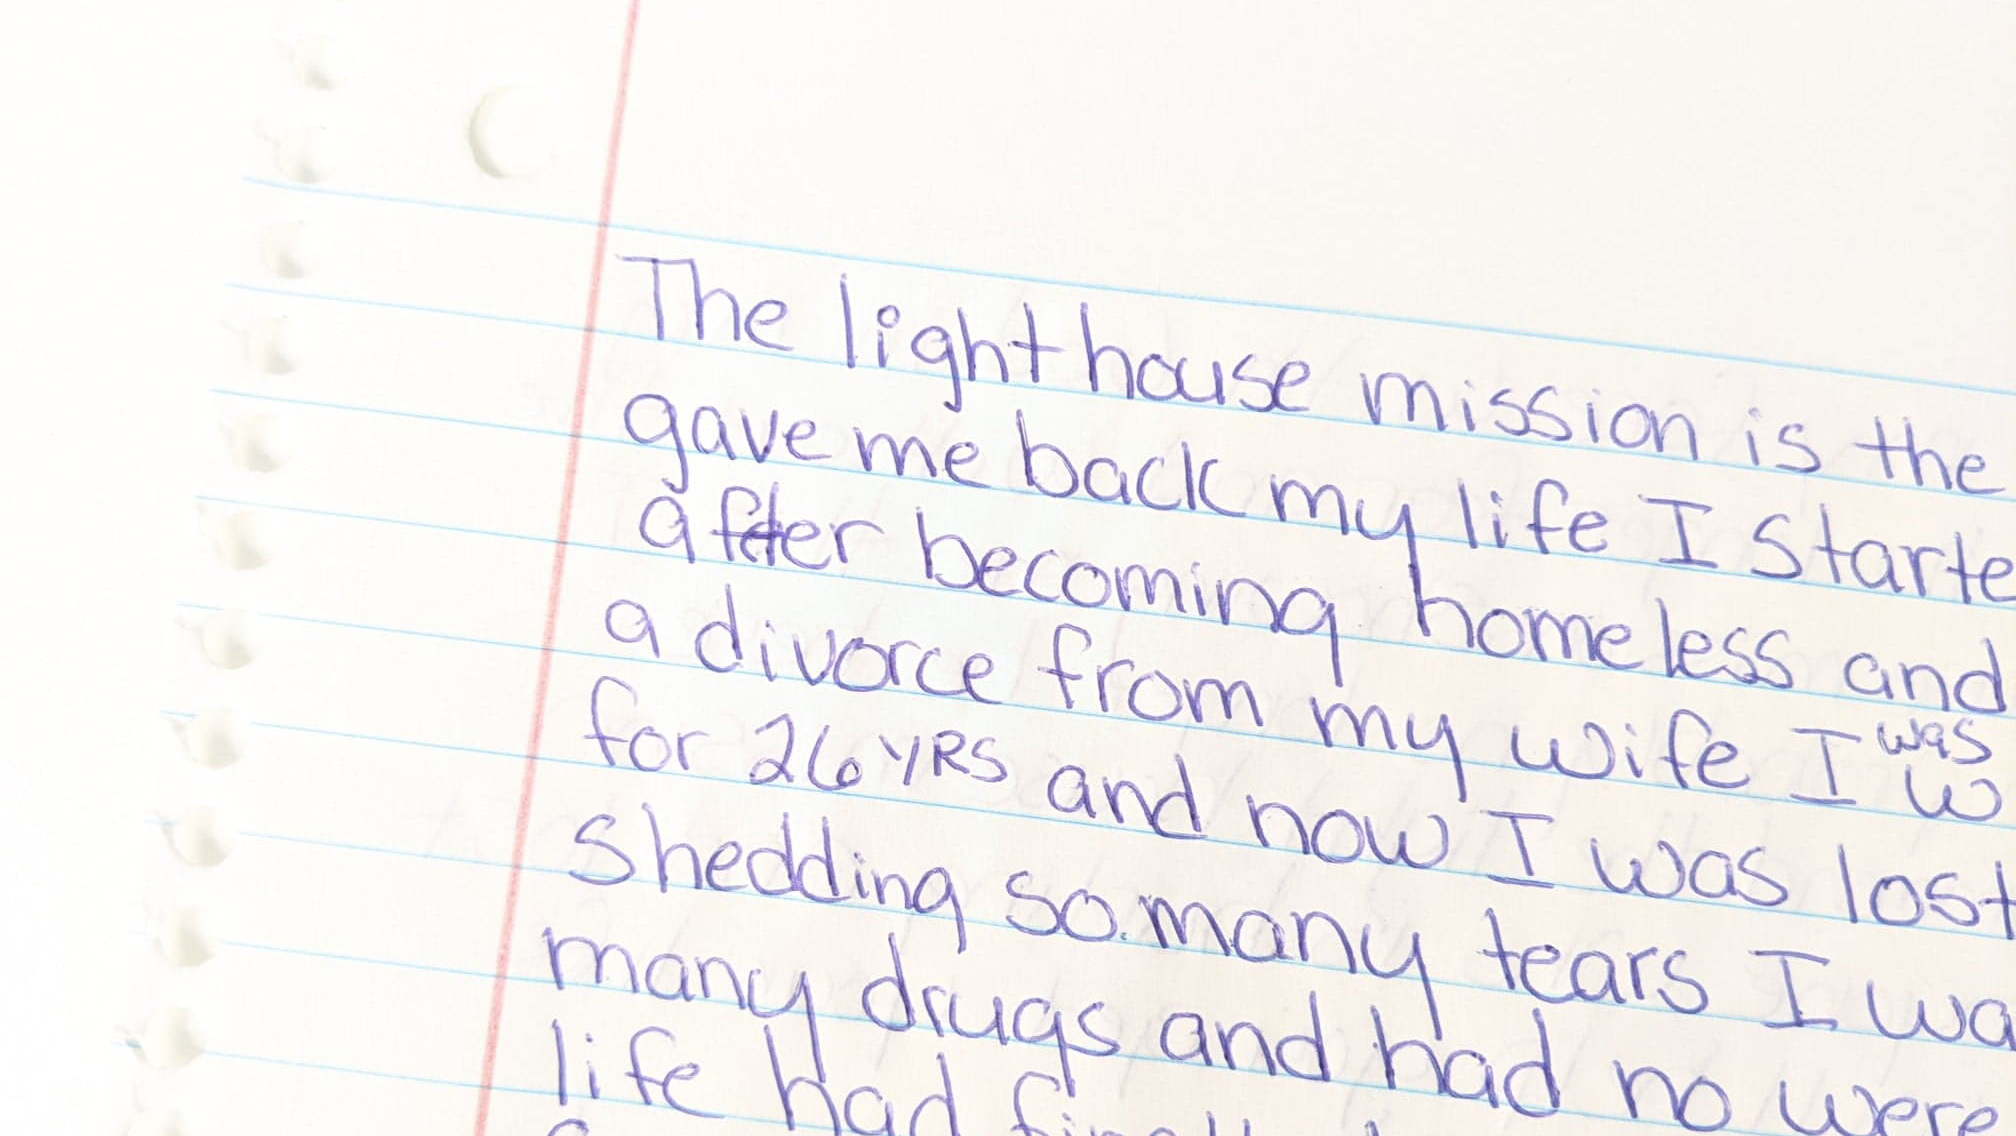 The light house mission is the
gave me back my life I starte
after becoming homeless and
a divorce from my wife I was w
for 26 YRS and now I was lost
shedding so many tears I wa
many drugs and had no were
life had